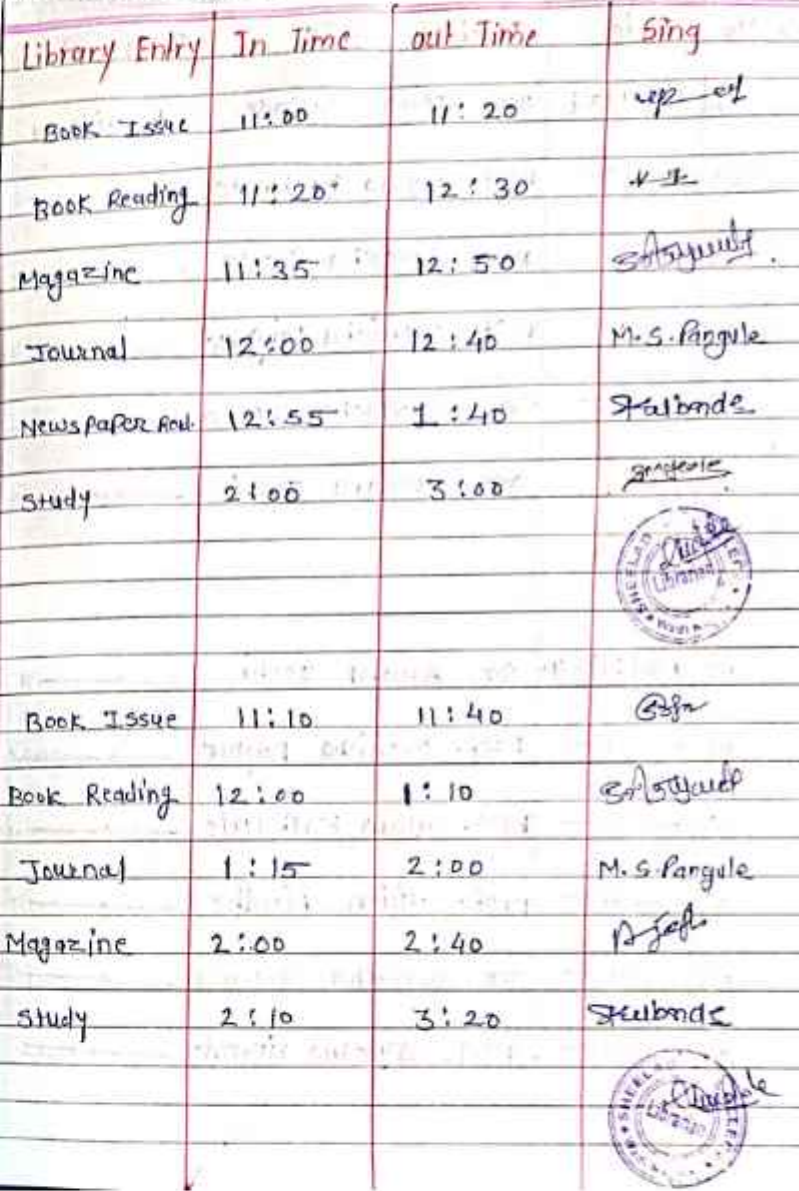 Library Entry In Time out Time Sing
Book Issue 11:00 11:20
Book Reading 11:20 12:30
Magazine 11:35 12:50
Journal 12:00 12:40 M.S.Pangule
Newspaper Read. 12:55 1:40 Skalbande
Study 2:00 3:00
SHEELAD
Librarian
Book Issue 11:10 11:40
Book Reading 12:00 1:10
Journal 1:15 2:00 M.S.Pangule
Magazine 2:00 2:40
Study 2:10 3:20 Skalbande
SHEELAD
Librarian